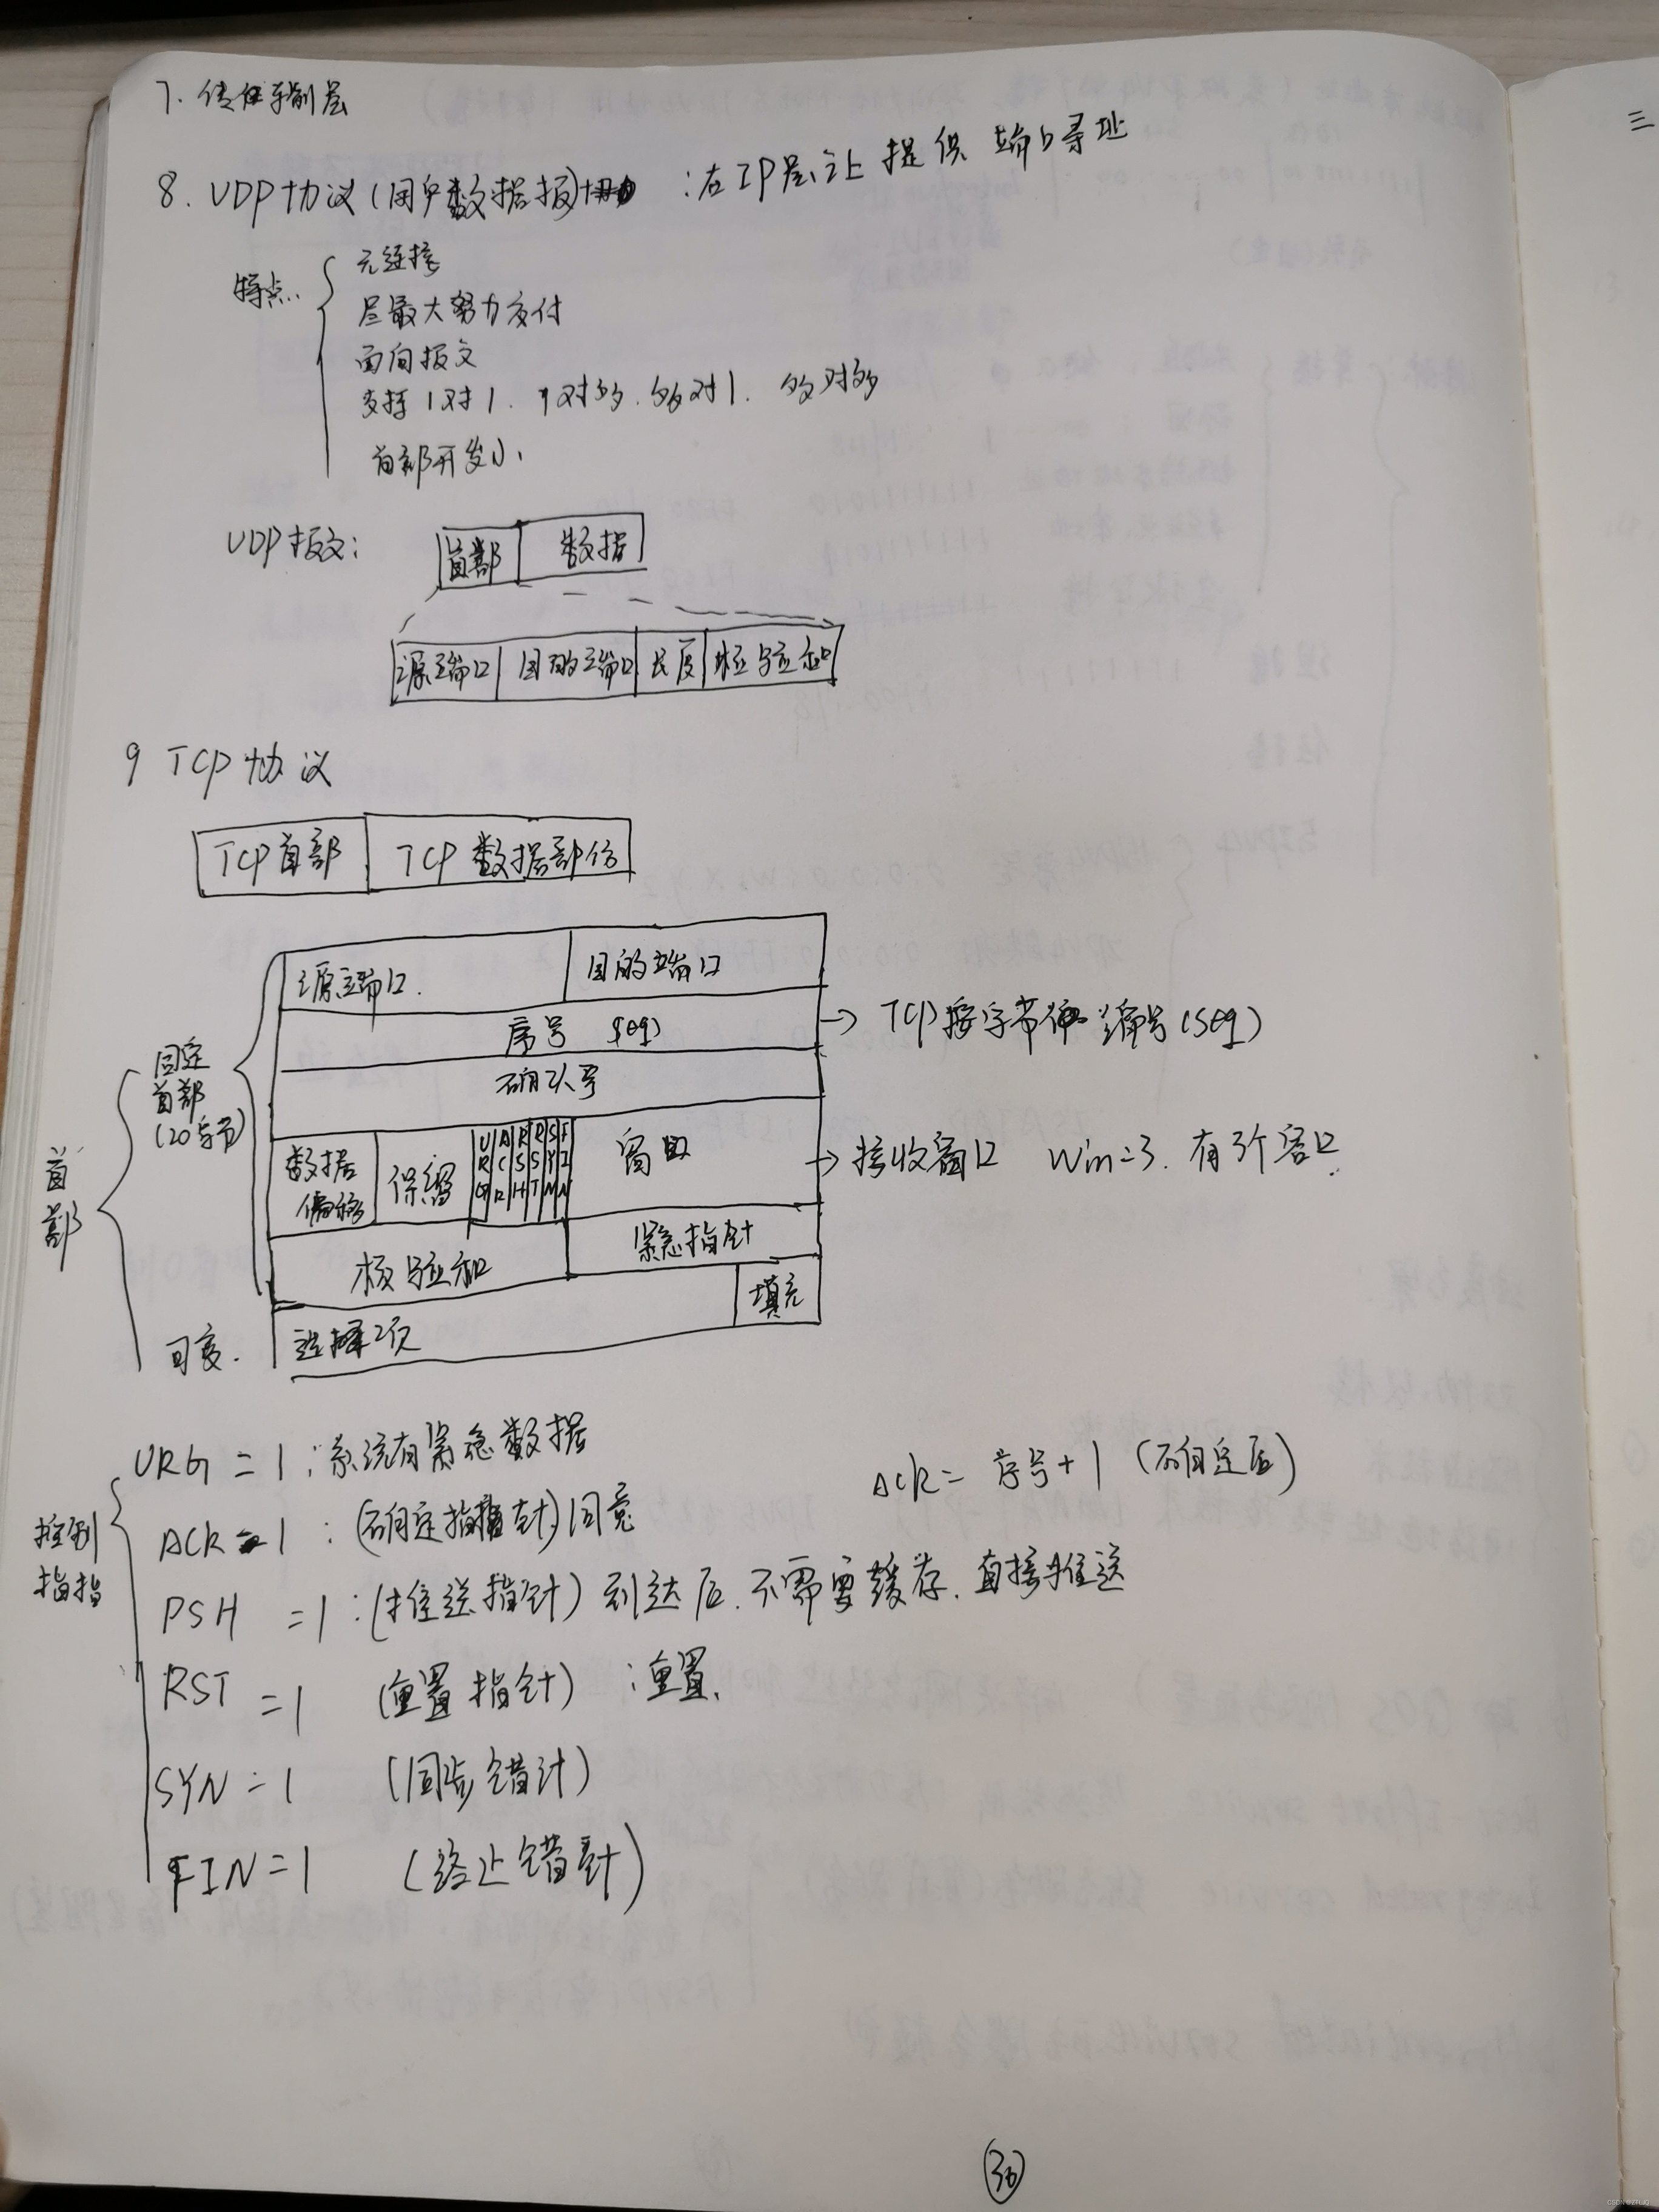 7. 传输层
8. UDP协议(用户数据报) :在IP层之上 提供 端口寻址
特点
无连接
尽最大努力交付
面向报文
支持1对1. 1对多. 多对1. 多对多
首部开发小
UDP报文:
首部 数据
源端口 目的端口 长度 检验和
9 TCP协议
TCP首部 TCP 数据部份
源端口. 目的端口
序号 seq → TCP按字节 编号(seq)
确认号
固定
首部
(20字节)
首
部
数据
偏移
保留
URG ACK PSH RST SYN FIN
窗口 → 接收窗口 Win=3. 有3个窗口.
校验和 紧急指针
可变. 选择项 填充
控制
URG = 1 : 系统有紧急数据
ACK = 序号+1 (确定后)
ACK = 1 : (确定指针)同意
PSH = 1 : (推送指针) 到达后. 不需要缓存. 直接推送
RST = 1 (重置指针) : 重置.
SYN = 1 (同步错计)
FIN = 1 (终止错针)
30
三
CSDN @ZN_jQ